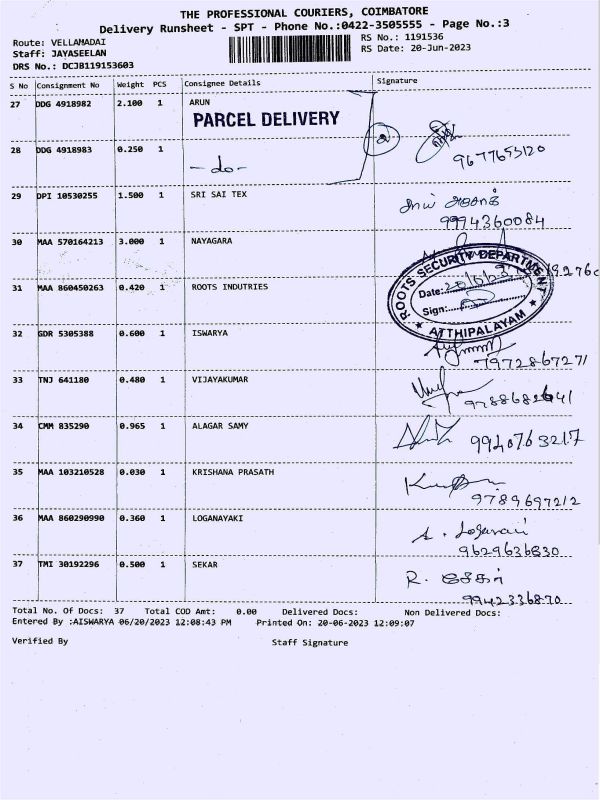 THE PROFESSIONAL COURIERS, COIMBATORE
Delivery Runsheet - SPT - Phone No.:0422-3505555 - Page No.:3
Route: VELLAMADAI
RS No.: 1191536
Staff: JAYASEELAN
RS Date: 20-Jun-2023
DRS No.: DCJB119153603
S No Consignment No Weight PCS Consignee Details Signature
27 DDG 4918982 2.100 1 ARUN
PARCEL DELIVERY
28 DDG 4918983 0.250 1
- do -
9677653120
29 DPI 10530255 1.500 1 SRI SAI TEX
9994360084
30 MAA 570164213 3.000 1 NAYAGARA
31 MAA 860450263 0.420 1 ROOTS INDUTRIES
ROOTS SECURITY DEPARTMENT
Date:
Sign:
ATTHIPALAYAM
32 GDR 5305388 0.600 1 ISWARYA
7972867271
33 TNJ 641180 0.480 1 VIJAYAKUMAR
34 CMM 835290 0.965 1 ALAGAR SAMY
9940763217
35 MAA 103210528 0.030 1 KRISHANA PRASATH
9789697212
36 MAA 860290990 0.360 1 LOGANAYAKI
9629636830
37 TMI 30192296 0.500 1 SEKAR
R. சேகர்
9942336870
Total No. Of Docs: 37 Total COD Amt: 0.00 Delivered Docs: Non Delivered Docs:
Entered By :AISWARYA 06/20/2023 12:08:43 PM Printed On: 20-06-2023 12:09:07
Verified By Staff Signature